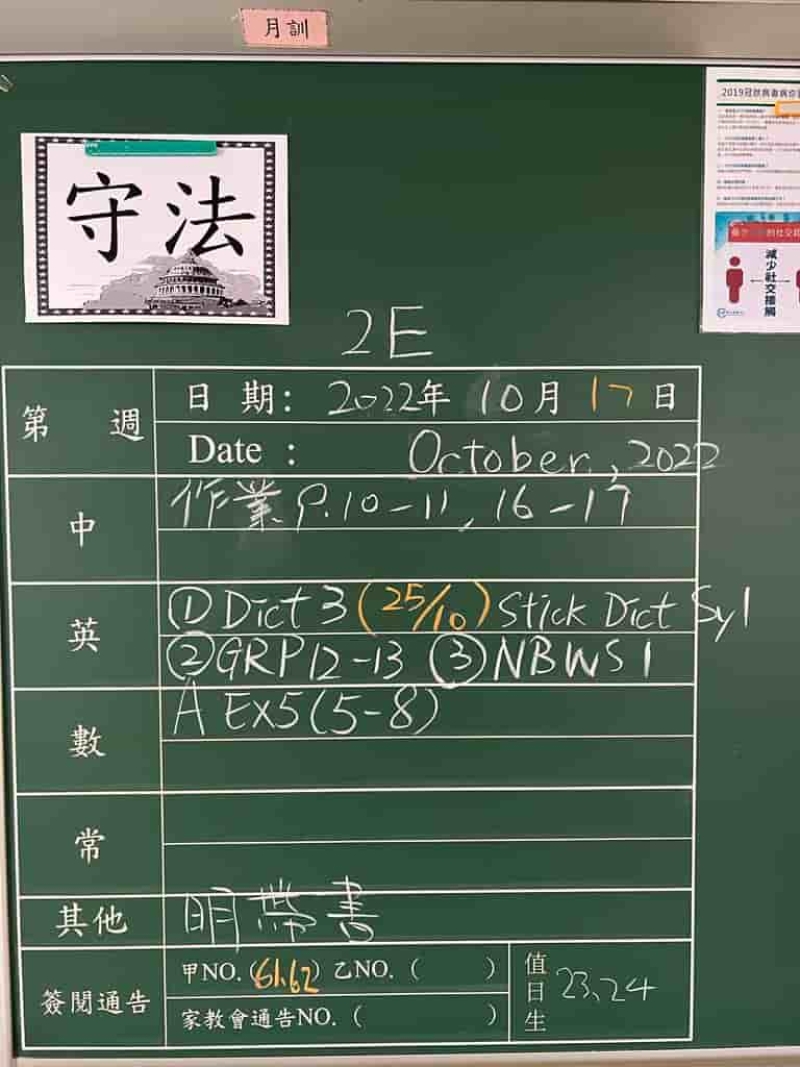 月訓
守法
2019冠狀病毒病
減少社交接觸
2E
第 週
日 期: 2022年 10月 17日
Date : October, 2022
中
作業 P.10-11, 16-17
英
①Dict 3 (25/10) Stick Dict Syl
②GRP12-13 ③NBWS1
數
A EX5(5-8)
常
其他
明帶書
簽閱通告
甲NO. (61,62) 乙NO. ( )
家教會通告NO. ( )
值日生
23、24